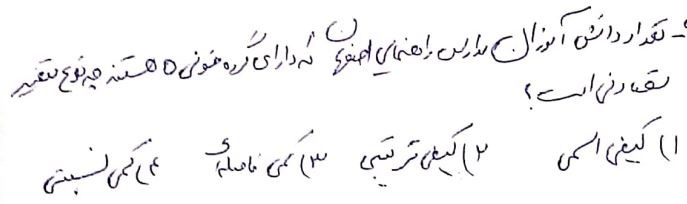 - تعداد دانش آموزان مدارس راهنمای اصفهان که دارای گروه خونی O هستند چه نوع متغیر
تصادفی است؟
۱) کیفی اسمی ۲) کیفی ترتیبی ۳) کمی فاصله‌ای ۴) کمی نسبتی